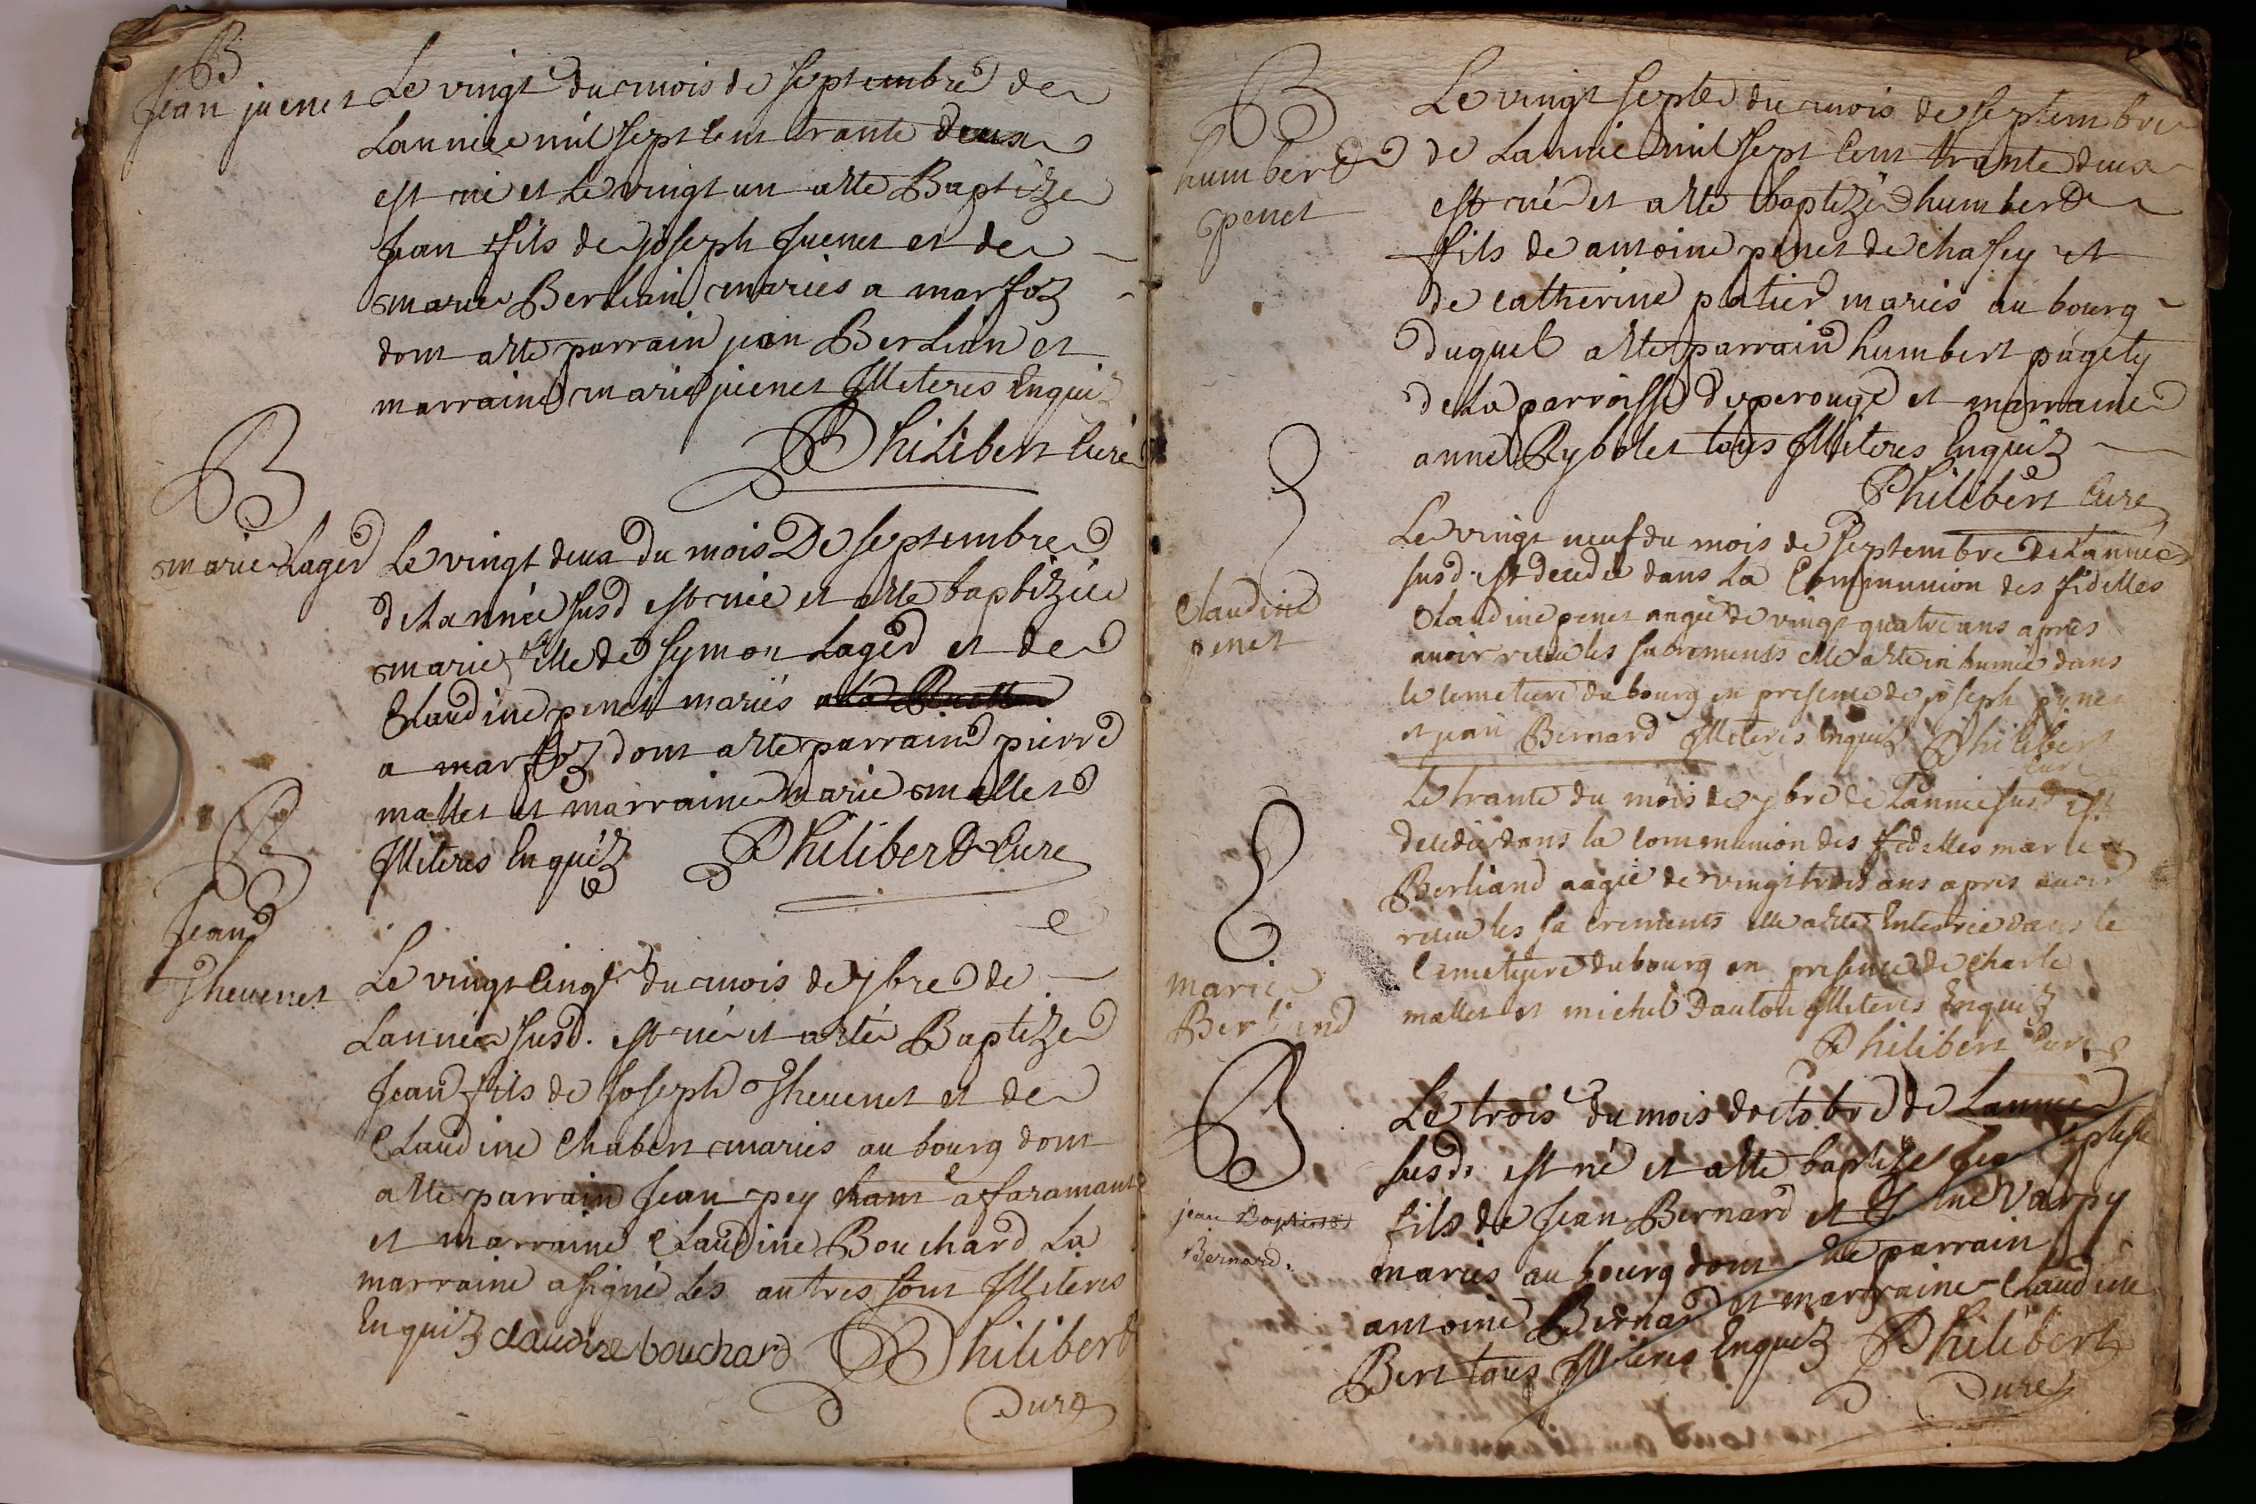 B
Jean juenet
Le vingt du mois de septembre de
Lannée mil sept cent trante deux
est né et le vingt un a été Baptizé
Jean fils de joseph Juenet et de
marie Berlian mariés a marfoz
dont a été parrain jean Berlian et
marraine marie juenet Illiterés Enquiz
Philibert Curé
B
marie Laged
Le vingt deux du mois De septembre
de Lannée susd est née et a été baptizée
marie fille de symon Laged et de
Claudine penet mariés
a marfoz dont a été parrain pierre
mallet et marraine marie mallet
Illiterés Enquiz Philibert Curé
B
Jean
Thevenet
Le vingt cinq du mois de 7bre de
Lannée susd. est né et a été Baptizé
Jean fils de Joseph Thevenet et de
Claudine Chabert mariés au bourg dont
a été parrain Jean pey chant a faramant
et marraine Claudine Bouchard La
marraine a signé Les autres sont Illiterés
Enquiz claudine bouchard Philibert
Curé
B
humbert
penet
Le vingt sept du mois de septembre
de Lannée mil sept Cent trante deux
est né et a été baptizé humbert
fils de antoine penet de chasey et
de catherine platier mariés au bourg
duquel a été parrain humbert pagety
de la parroisse de perouge et marraine
anne Rybolet tous Illiterés Enquiz
Philibert Curé
Claudine
penet
Le vingt neuf du mois de septembre de Lannée
susd. est decedée dans La Communion des fidelles
Claudine penet angée de vingt quatre ans apres
avoir receu les sacrements elle a été inhumée dans
le cemetiere du bourg en presence de joseph
et jean Bernard Illiterés Enquiz Philibert
Curé
marie
Berliand
Le trante du mois de 7bre de Lannée susd est
decedée dans la communion des fidelles marie
Berliand aagée de vingt trois ans apres avoir
receu les sacrements elle a été Enterrée dans le
Cemetiere du bourg en presence de charle
mallet et michel Dauton Illiterés Enquiz
Philibert Curé
B
jean Baptiste
Bernard.
Le trois du mois doctobre de Lannée
susd. est né et a été baptizé jean baptiste
fils de Jean Bernard et Varpy
mariés au bourg dont a été parrain
antoine Bernard et marraine Claudine
Bert tous Illiterés Enquiz Philibert
Curé